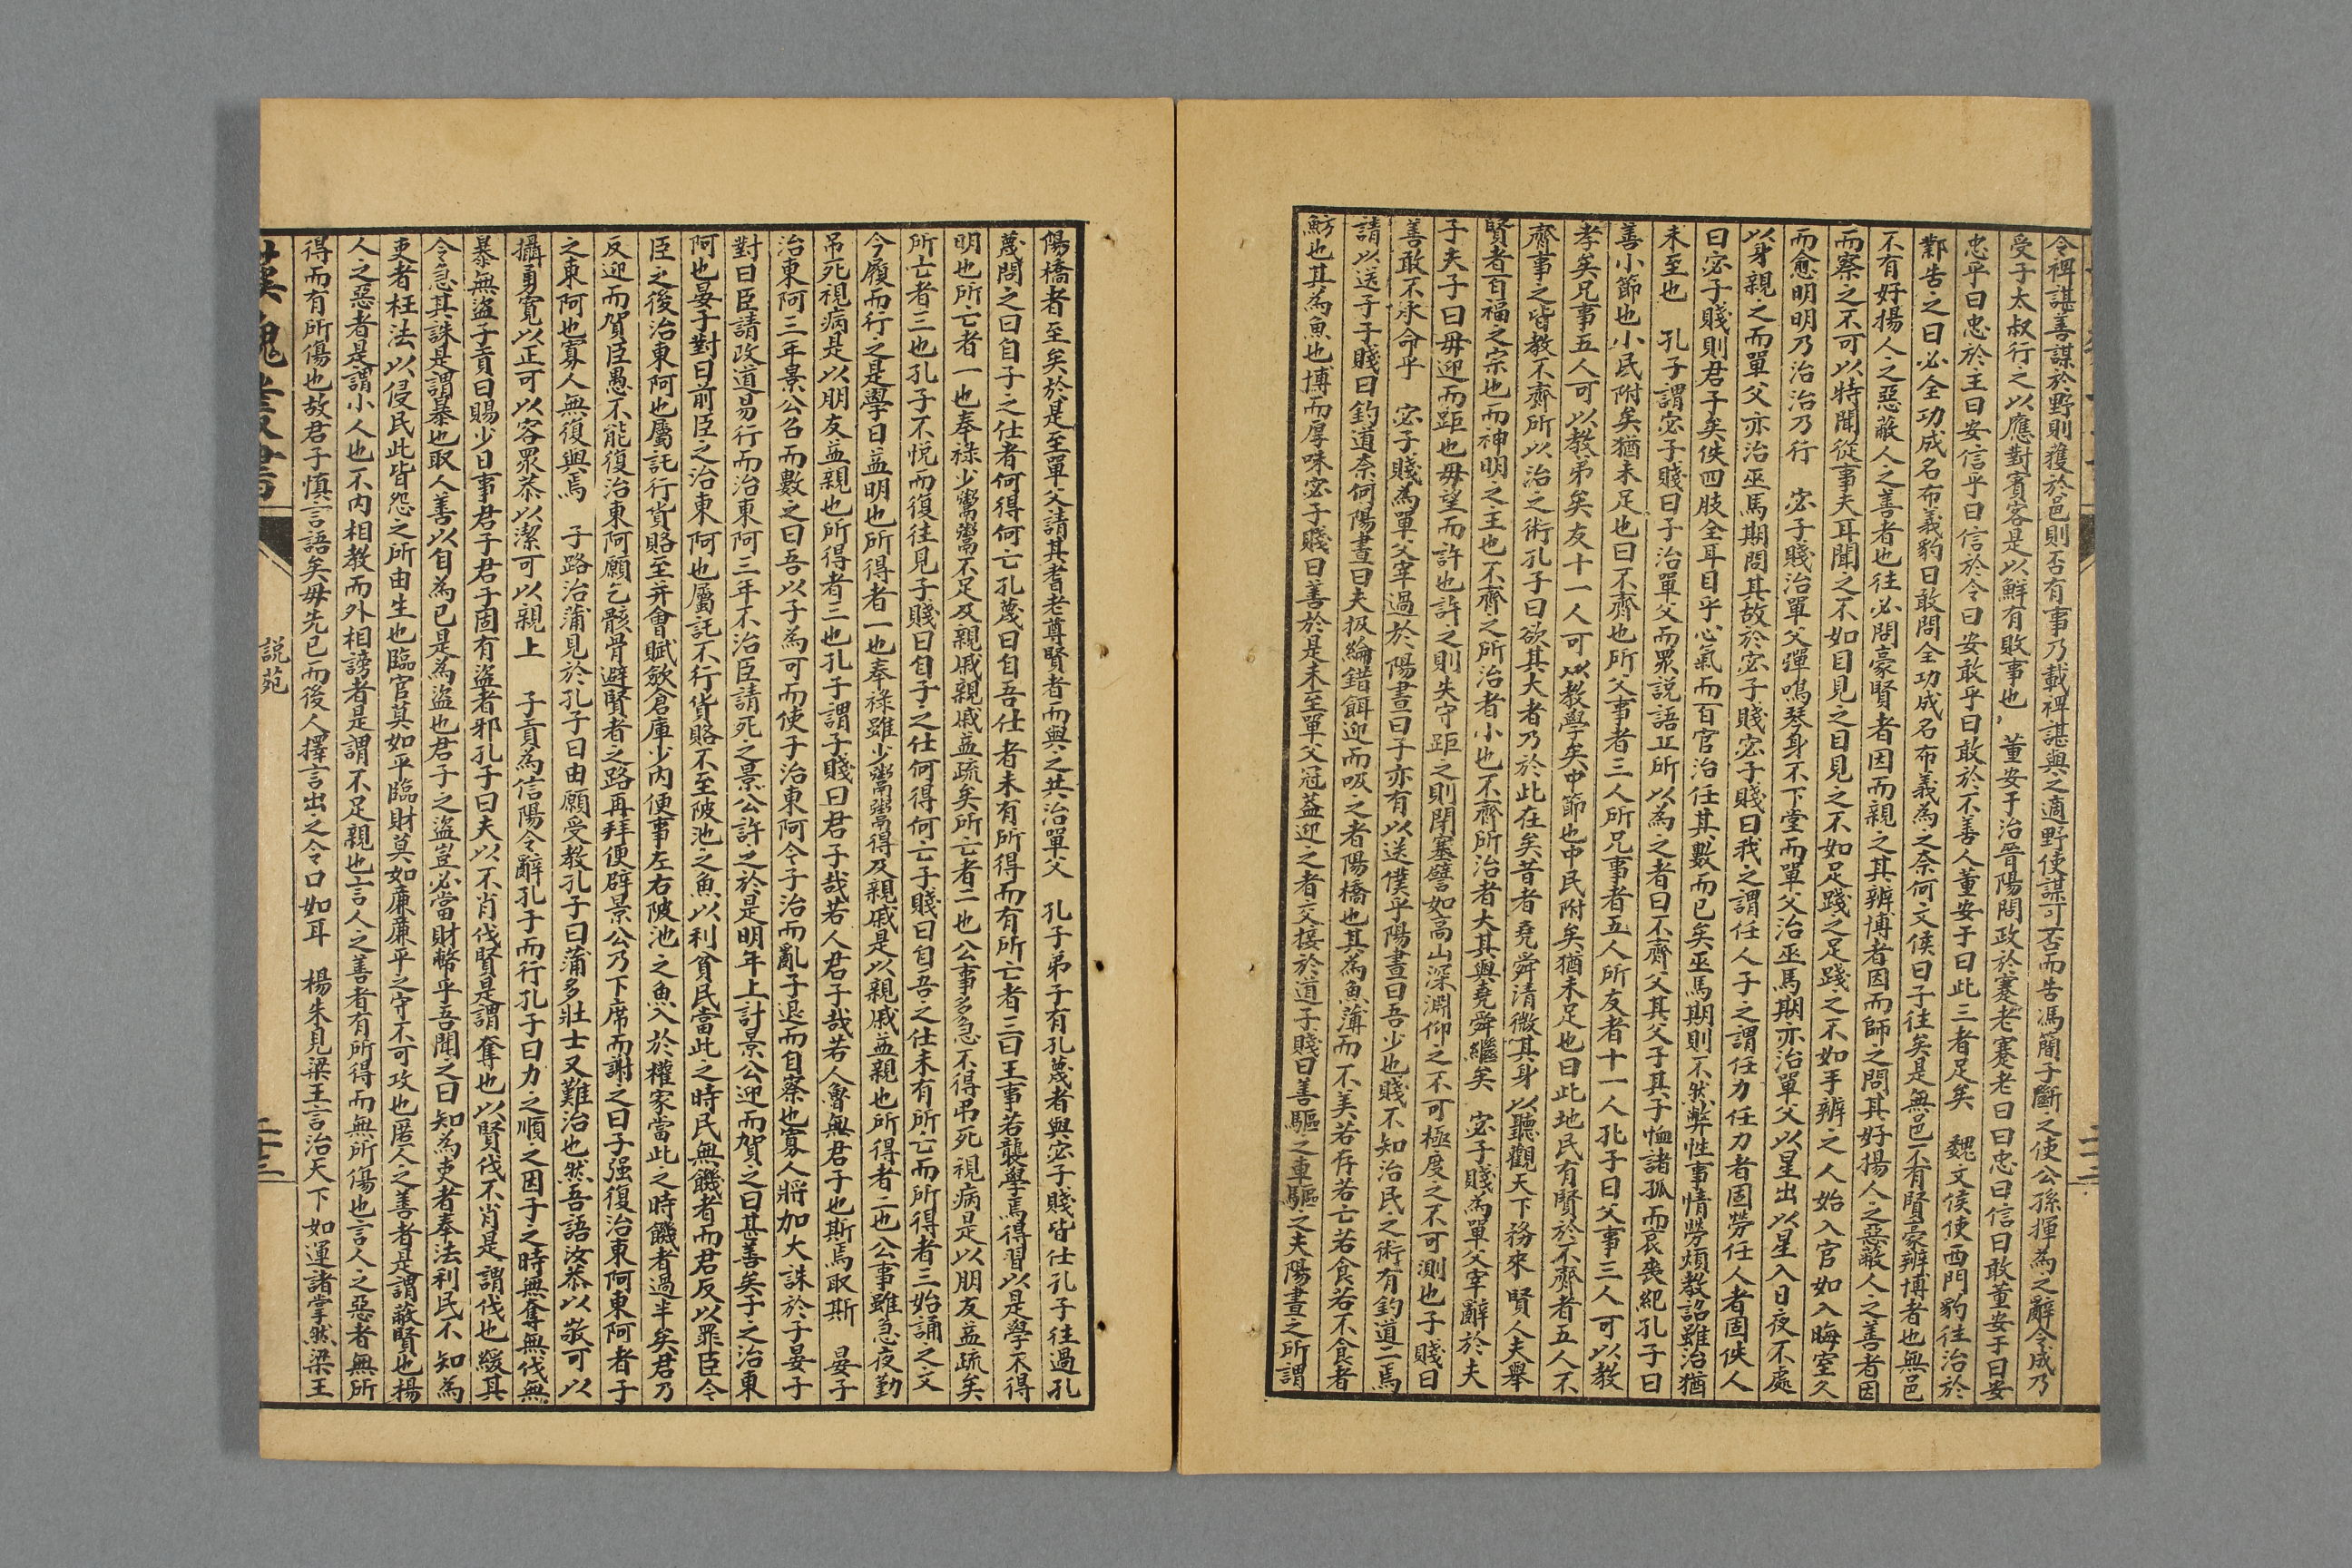 令裨諶善謀於野則獲於邑則否有事乃載裨諶與之適野使謀可否而告馮簡子斷之使公孫揮為之辭令成乃
受子太叔行之以應對賓客是以鮮有敗事也　董安于治晉陽問政於蹇老蹇老曰曰忠曰信曰敢董安于曰安
忠乎曰忠於主曰安信乎曰信於令曰安敢乎曰敢於不善人董安于曰此三者足矣　魏文侯使西門豹往治於
鄴告之曰必全功成名布義豹曰敢問全功成名布義為之奈何文侯曰子往矣是無邑不有賢豪辨博者也無邑
不有好揚人之惡蔽人之善者也往必問豪賢者因而親之其辨博者因而師之問其好揚人之惡蔽人之善者因
而察之不可以特聞從事夫耳聞之不如目見之目見之不如足踐之足踐之不如手辨之人始入官如入晦室久
而愈明明乃治治乃行　宓子賤治單父彈鳴琴身不下堂而單父治巫馬期亦治單父以星出以星入日夜不處
以身親之而單父亦治巫馬期問其故於宓子賤宓子賤曰我之謂任人子之謂任力任力者固勞任人者固佚人
曰宓子賤則君子矣佚四肢全耳目平心氣而百官治任其數而已矣巫馬期則不然弊性事情勞煩教詔雖治猶
未至也　孔子謂宓子賤曰子治單父而眾說語丘所以為之者曰不齊父其父子其子恤諸孤而哀喪紀孔子曰
善小節也小民附矣猶未足也曰不齊也所父事者三人所兄事者五人所友者十一人孔子曰父事三人可以教
孝矣兄事五人可以教弟矣友十一人可以教學矣中節也中民附矣猶未足也曰此地民有賢於不齊者五人不
齊事之皆教不齊所以治之術孔子曰欲其大者乃於此在矣昔者堯舜清微其身以聽觀天下務來賢人夫舉
賢者百福之宗也而神明之主也不齊之所治者小也不齊所治者大其與堯舜繼矣　宓子賤為單父宰辭於夫
子夫子曰毋迎而距也毋望而許也許之則失守距之則閉塞譬如高山深淵仰之不可極度之不可測也子賤曰
善敢不承命乎　宓子賤為單父宰過於陽晝曰子亦有以送僕乎陽晝曰吾少也賤不知治民之術有釣道二焉
請以送子子賤曰釣道奈何陽晝曰夫扱綸錯餌迎而吸之者陽橋也其為魚薄而不美若存若亡若食若不食者
魴也其為魚也博而厚味宓子賤曰善於是未至單父冠蓋迎之者交接於道子賤曰善驅之車驅之夫陽晝之所謂
陽橋者至矣於是至單父請其耆老尊賢者而與之共治單父　孔子弟子有孔蔑者與宓子賤皆仕孔子往過孔
蔑問之曰自子之仕者何得何亡孔蔑曰自吾仕者未有所得而有所亡者三曰王事若襲學焉得習以是學不得
明也所亡者一也奉祿少鬻鬻不足及親戚親戚益疏矣所亡者二也公事多急不得吊死視病是以朋友益疏矣
所亡者三也孔子不悅而復往見子賤曰自子之仕何得何亡子賤曰自吾之仕未有所亡而所得者三始誦之文
今履而行之是學日益明也所得者一也奉祿雖少鬻鬻得及親戚是以親戚益親也所得者二也公事雖急夜勤
吊死視病是以朋友益親也所得者三也孔子謂子賤曰君子哉若人君子哉若人魯無君子也斯焉取斯　晏子
治東阿三年景公召而數之曰吾以子為可而使子治東阿今子治而亂子退而自察也寡人將加大誅於子晏子
對曰臣請改道易行而治東阿三年不治臣請死之景公許之於是明年上計景公迎而賀之曰甚善矣子之治東
阿也晏子對曰前臣之治東阿也屬託不行貨賂不至陂池之魚以利貧民當此之時民無饑者而君反以罪臣今
臣之後治東阿也屬託行貨賂至并會賦斂倉庫少內便事左右陂池之魚入於權家當此之時饑者過半矣君乃
反迎而賀臣愚不能復治東阿願乞骸骨避賢者之路再拜便辟景公乃下席而謝之曰子强復治東阿東阿者子
之東阿也寡人無復與焉　子路治蒲見於孔子曰由願受教孔子曰蒲多壯士又難治也然吾語汝恭以敬可以
攝勇寬以正可以容眾恭以潔可以親上　子貢為信陽令辭孔子而行孔子曰力之順之因子之時無奪無伐無
暴無盜子貢曰賜少日事君子君子固有盜者邪孔子曰夫以不肖伐賢是謂奪也以賢伐不肖是謂伐也緩其
令急其誅是謂暴也取人善以自為己是為盜也君子之盜豈必當財幣乎吾聞之曰知為吏者奉法利民不知為
吏者枉法以侵民此皆怨之所由生也臨官莫如平臨財莫如廉廉平之守不可攻也匿人之善者是謂蔽賢也揚
人之惡者是謂小人也不內相教而外相謗者是謂不足親也言人之善者有所得而無所傷也言人之惡者無所
得而有所傷也故君子慎言語矣毋先己而後人擇言出之令口如耳　楊朱見梁王言治天下如運諸掌然梁王
漢魏叢書　說苑　二十三